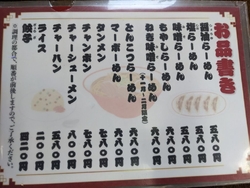 お品書き
醤油らーめん 五八〇
塩らーめん 五八〇
味噌らーめん 六八〇
もやしらーめん 六八〇
ねぎ味噌らーめん 六八〇
とんこつらーめん 六八〇
マーボーめん 六八〇
タンメン 七八〇
チャンポン 七八〇
チャーシューメン 七八〇
チャーハン 五八〇
ライス 二〇〇
餃子 四二〇